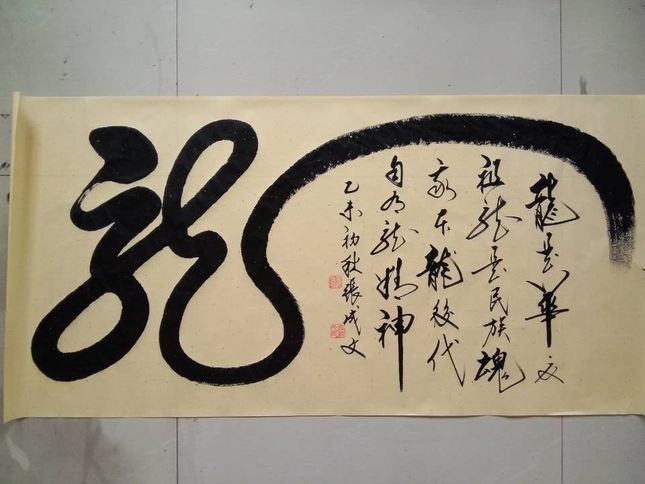 龍
龍是華夏
祖龍是民族魂
我本龍後代
自有龍精神
乙未初秋張成文